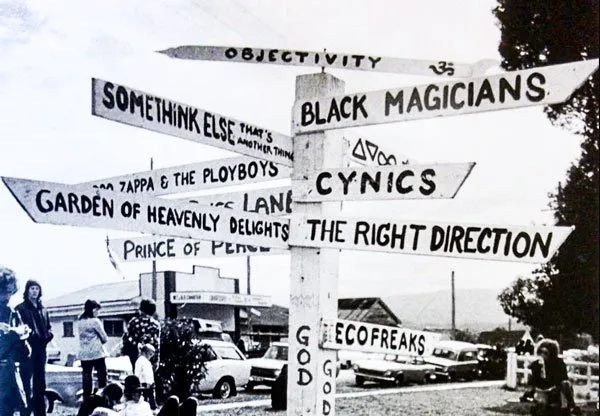 OBJECTIVITY ॐ
BLACK MAGICIANS
SOMETHiNK ELSE THAT'S
ANOTHER THING
ZAPPA & THE PLOYBOYS
CYNICS
LAND
GARDEN OF HEAVENLY DELIGHTS
THE RIGHT DIRECTION
PRINCE OF PEACE
ECOFREAKS
GOD
GOD